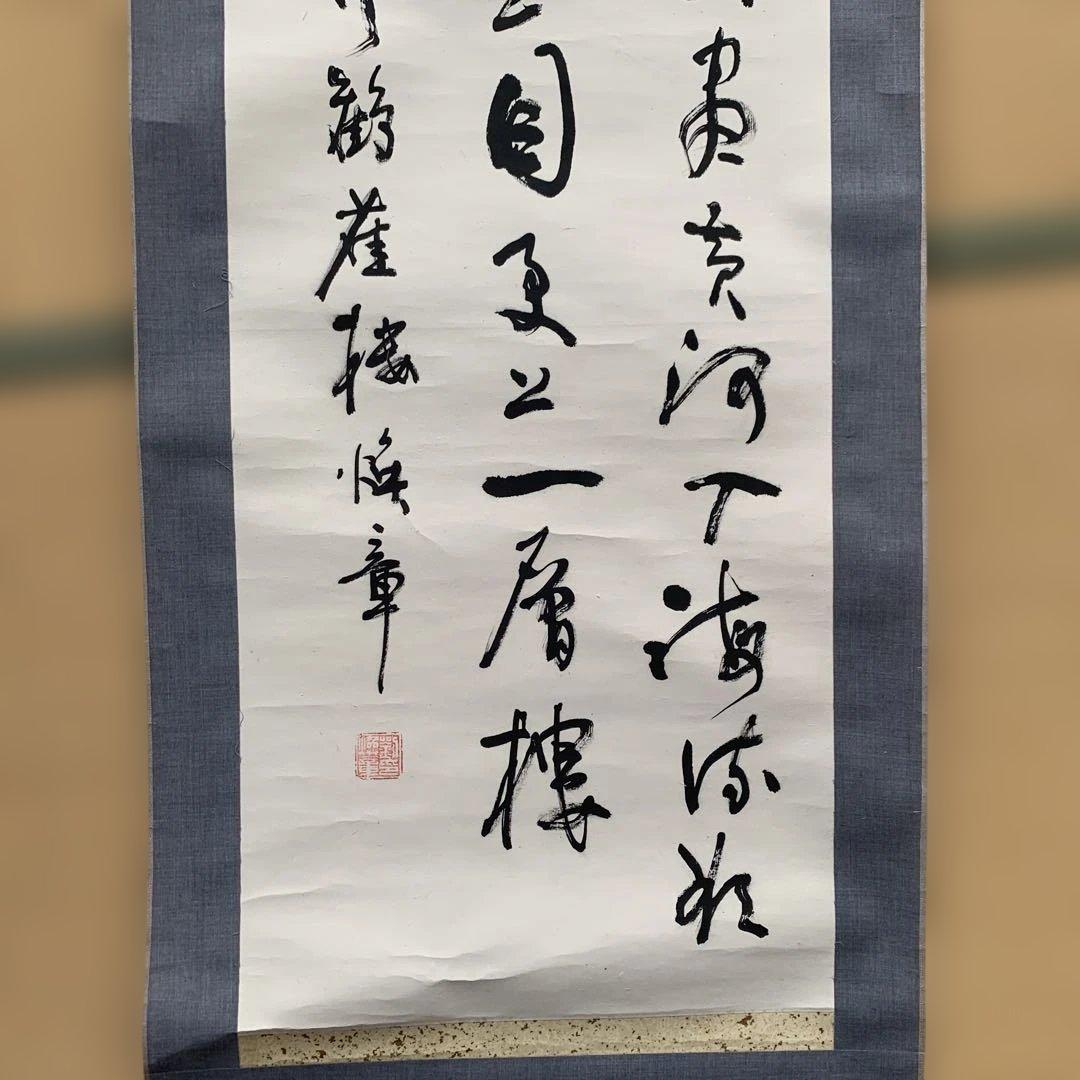 盡黄河入海流欲
目更上一層樓
鸛雀樓 煥章